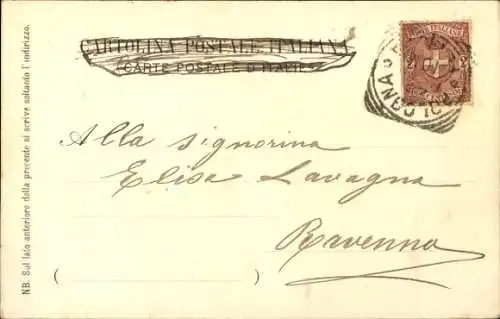 CARTOLINA POSTALE ITALIANA
CARTE POSTALE D'ITALIE
POSTE ITALIANE
Alla signorina
Elisa Lavagna
Ravenna
( )
NB. Sul lato anteriore della presente si scrive soltanto l'indirizzo.